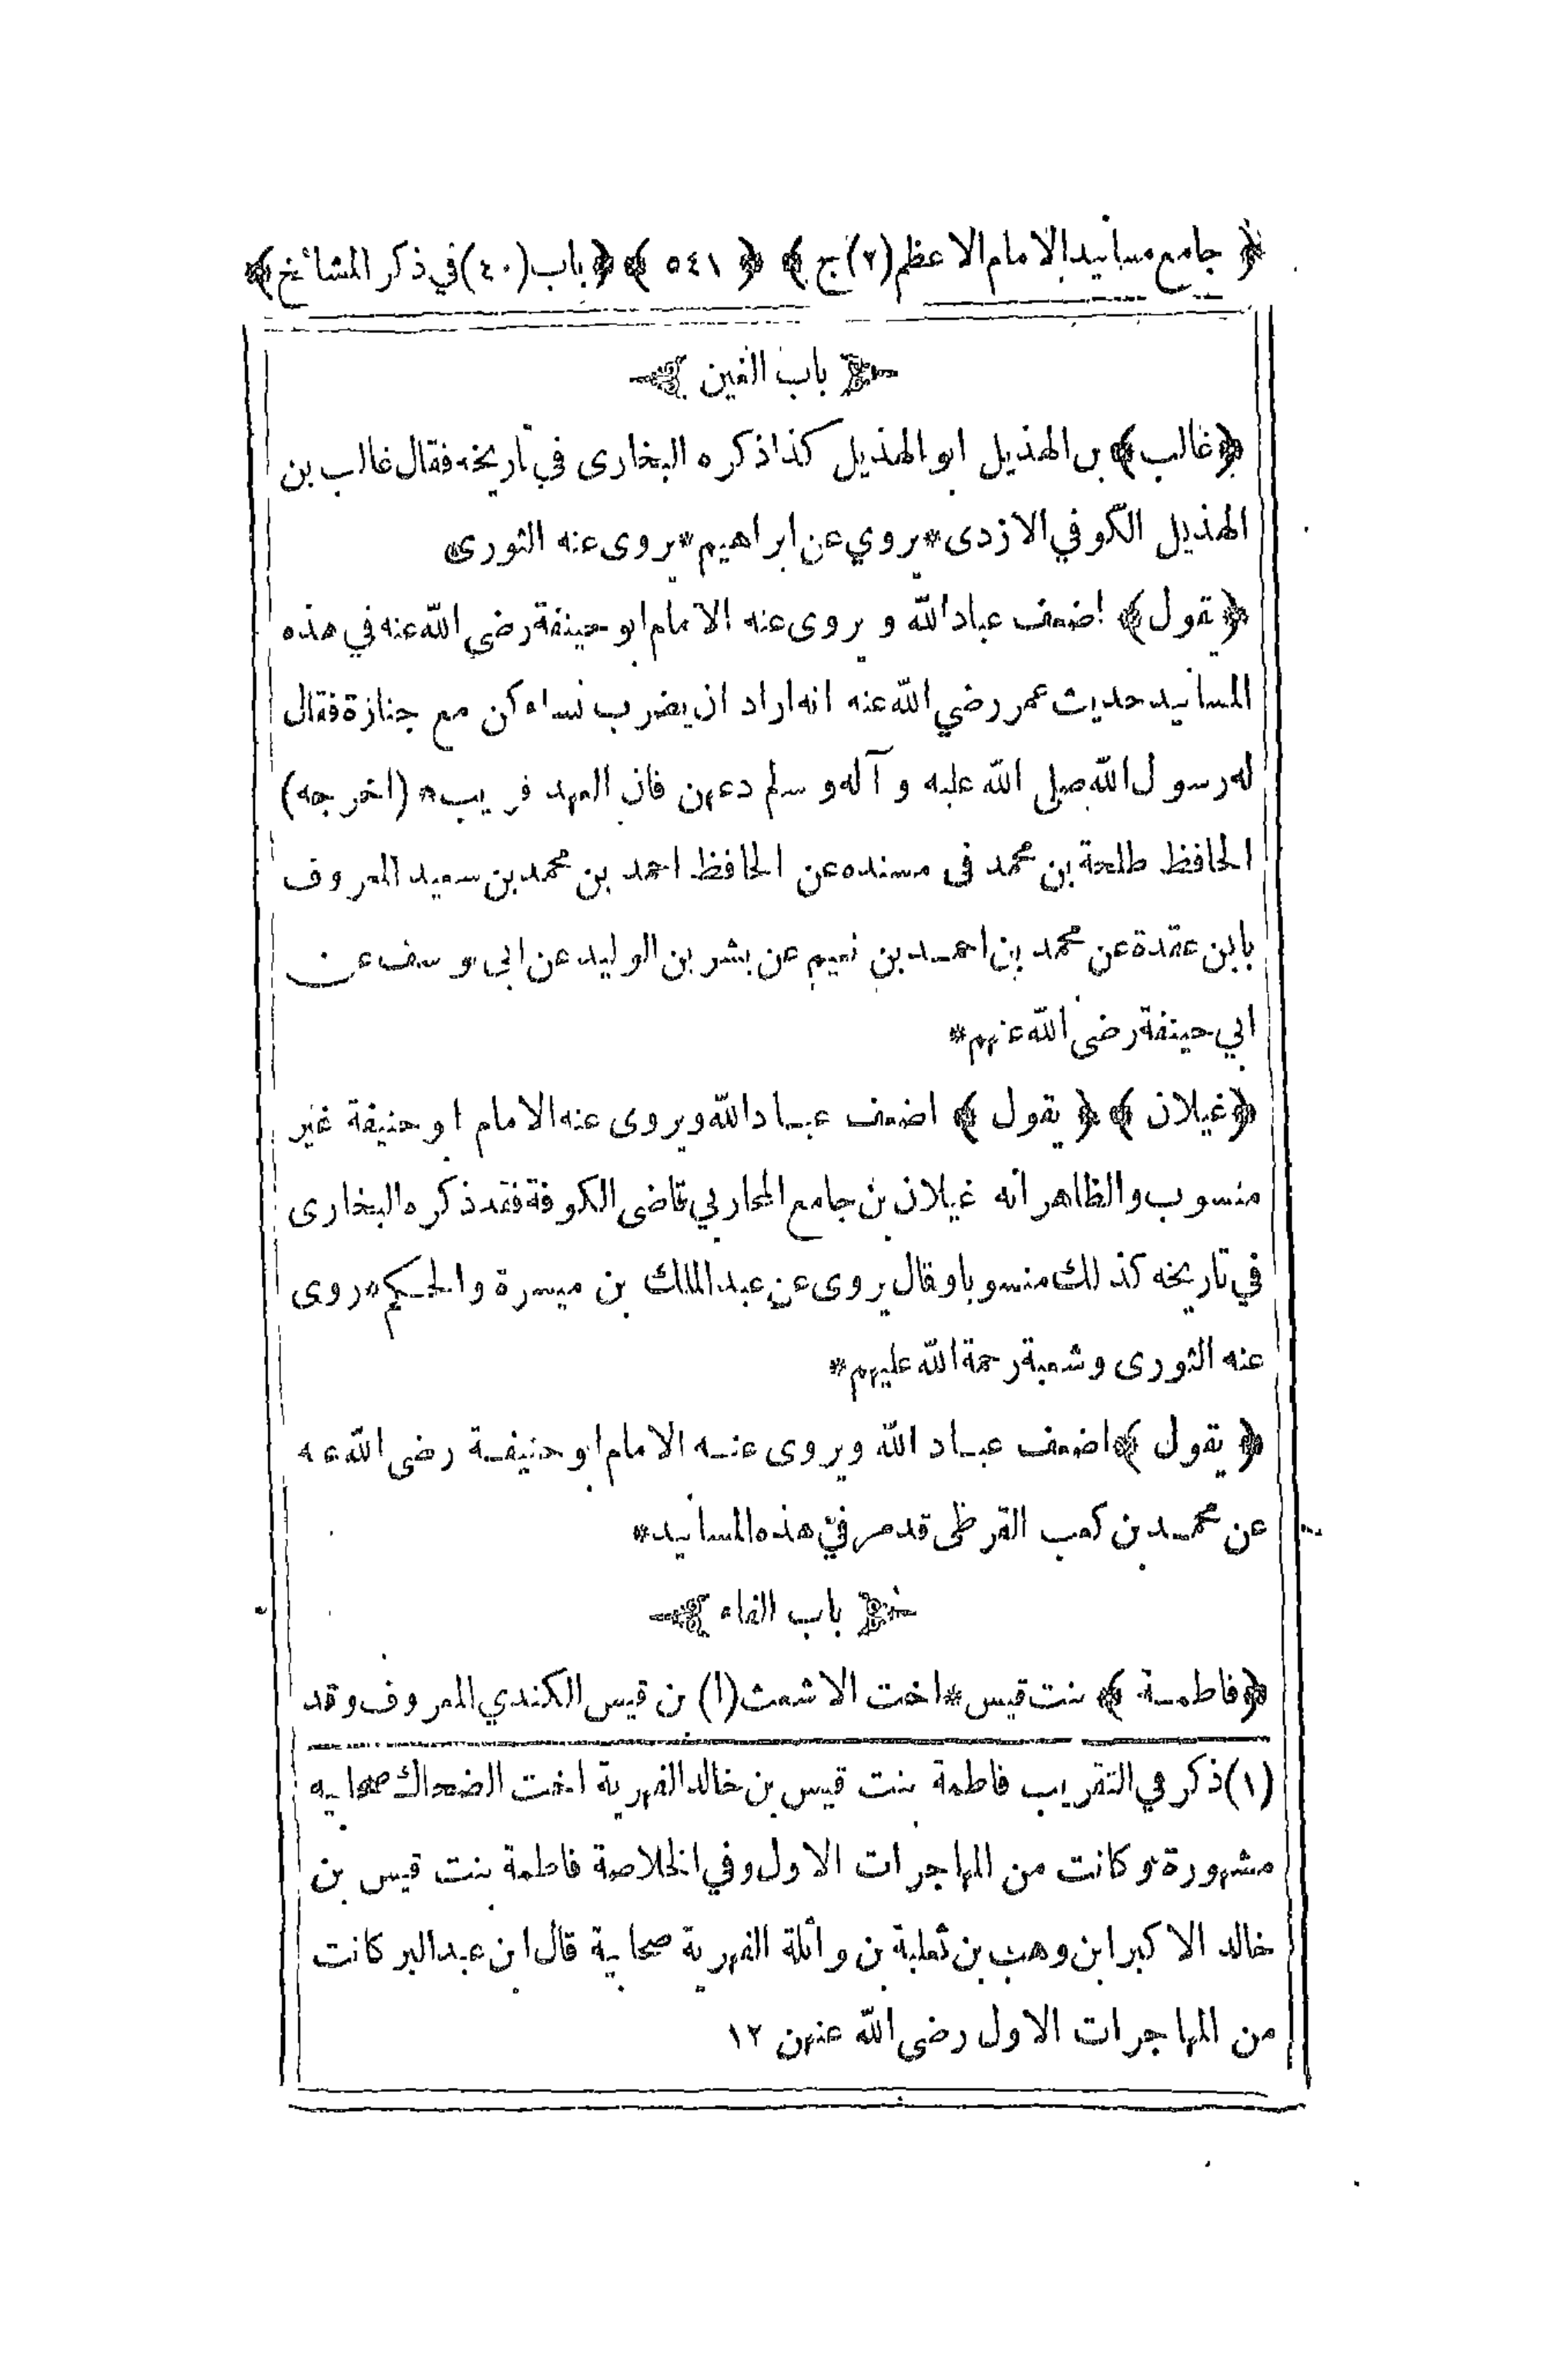 ﴿ جامع مسانيد الامام الاعظم (٢) ج ﴾ ﴿ ٥٤١ ﴾ ﴿ باب (٤٠) في ذكر المشائخ ﴾
باب الغين
﴿ غالب ﴾ بن الهذيل ابو الهذيل كذا ذكره البخارى في تاريخه فقال غالب بن
الهذيل الكوفي الازدى * يروي عن ابراهيم * يروى عنه الثورى
﴿ يقول ﴾ اضعف عباد الله و يروى عنه الامام ابو حنيفة رضى الله عنه في هذه
المسانيد حديث عمر رضي الله عنه انه اراد ان يضرب نساء كن مع جنازة فقال
له رسول الله صلى الله عليه و آله و سلم دعهن فان العهد قريب * (اخرجه)
الحافظ طلحة بن محمد فى مسنده عن الحافظ احمد بن محمد بن سعيد المعروف
بابن عقدة عن محمد بن احمد بن نعيم عن بشر بن الوليد عن ابي يوسف عن
ابي حنيفة رضى الله عنهم *
﴿ غيلان ﴾ ﴿ يقول ﴾ اضعف عباد الله ويروى عنه الامام ابو حنيفة غير
منسوب والظاهر انه غيلان بن جامع المحاربي قاضى الكوفة فقد ذكره البخارى
في تاريخه كذلك منسوبا وقال يروى عن عبد الملك بن ميسرة والحكم * روى
عنه الثورى وشعبة رحمة الله عليهم *
﴿ يقول ﴾ اضعف عباد الله ويروى عنه الامام ابو حنيفة رضى الله عنه
عن محمد بن كعب القرظى قد مر في هذه المسانيد *
باب الفاء
﴿ فاطمة ﴾ بنت قيس * اخت الاشعث (١) بن قيس الكندي المعروف وقد
(١) ذكر في التقريب فاطمة بنت قيس بن خالد الفهرية اخت الضحاك صحابيه
مشهورة وكانت من المهاجرات الاول وفي الخلاصة فاطمة بنت قيس بن
خالد الاكبر ابن وهب بن ثعلبة بن وائلة الفهرية صحابية قال ابن عبد البر كانت
من المهاجرات الاول رضى الله عنهن ١٢